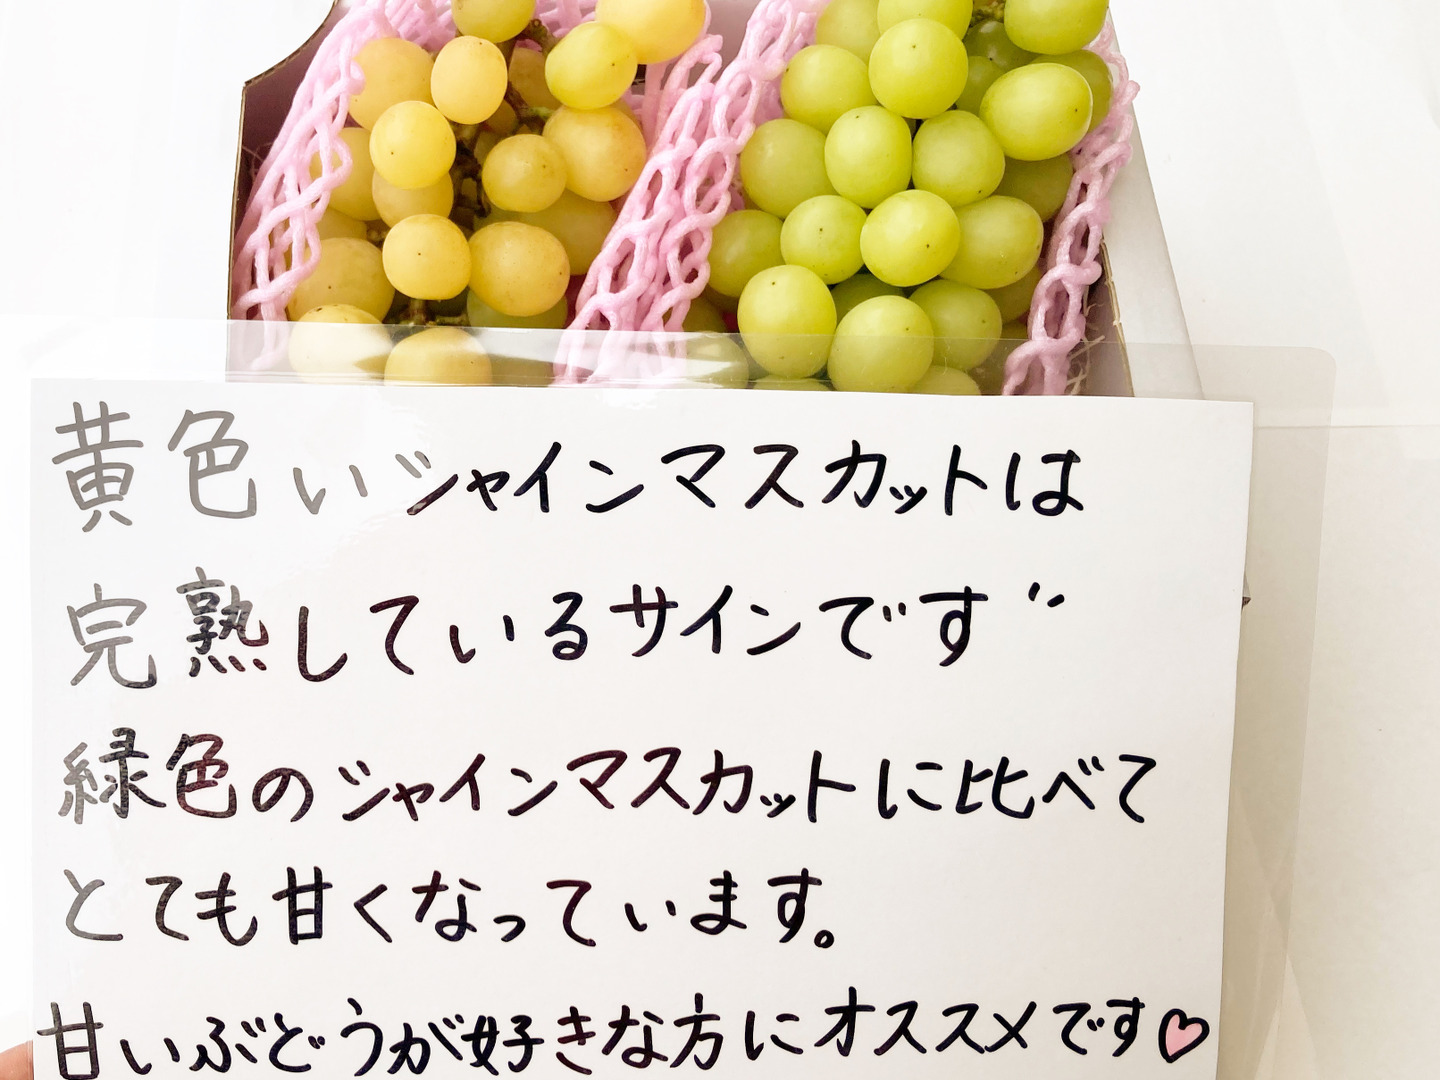 黄色いシャインマスカットは
完熟しているサインです"
緑色のシャインマスカットに比べて
とても甘くなっています。
甘いぶどうが好きな方にオススメです♡